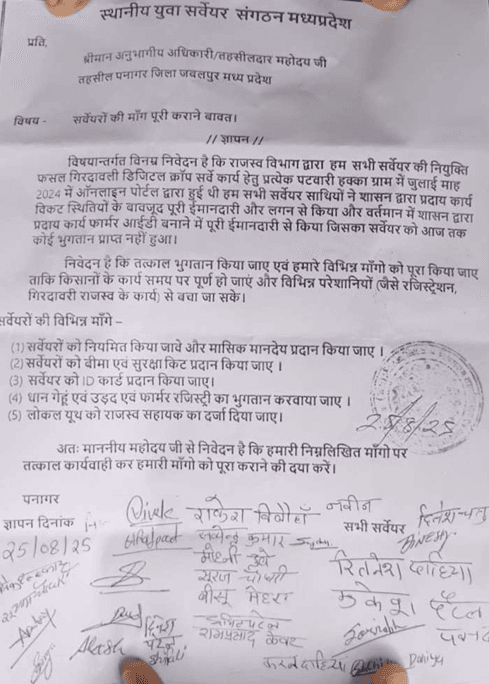 स्थानीय युवा सर्वेयर संगठन मध्यप्रदेश
प्रति,
श्रीमान अनुभागीय अधिकारी/तहसीलदार महोदय जी
तहसील पनागर जिला जबलपुर मध्य प्रदेश
विषय - सर्वेयरों की माँग पूरी कराने बावत।
// ज्ञापन //
विषयान्तर्गत विनम्र निवेदन है कि राजस्व विभाग द्वारा हम सभी सर्वेयर की नियुक्ति
फसल गिरदावली डिजिटल क्रॉप सर्वे कार्य हेतु प्रत्येक पटवारी हक्का ग्राम में जुलाई माह
2024 में ऑनलाइन पोर्टल द्वारा हुई थी हम सर्वेयर साथियों ने शासन द्वारा प्रदाय कार्य
विकट स्थितियों के बावजूद पूरी ईमानदारी और लगन से किया और वर्तमान में शासन द्वारा
प्रदाय कार्य फार्मर आईडी बनाने में पूरी ईमानदारी से किया जिसका सर्वेयर को आज तक
कोई भुगतान प्राप्त नहीं हुआ।
निवेदन है कि तत्काल भुगतान किया जाए एवं हमारे विभिन्न माँगो को पूरा किया जाए
ताकि किसानों के कार्य समय पर पूर्ण हो जाएं और विभिन्न परेशानियों (जैसे रजिस्ट्रेशन,
गिरदावरी राजस्व के कार्य) से बचा जा सके।
सर्वेयरों की विभिन्न माँगे –
(1) सर्वेयरों को नियमित किया जावे और मासिक मानदेय प्रदान किया जाए ।
(2) सर्वेयरों को बीमा एवं सुरक्षा किट प्रदान किया जाए ।
(3) सर्वेयर को ID कार्ड प्रदान किया जाए।
(4) धान गेहूं एवं उड़द एवं फार्मर रजिस्ट्री का भुगतान करवाया जाए ।
(5) लोकल यूथ को राजस्व सहायक का दर्जा दिया जाए।
25/8/25
अतः माननीय महोदय जी से निवेदन है कि हमारी निम्नलिखित माँगो पर
तत्काल कार्यवाही कर हमारी मांगो को पूरा कराने की दया करें।
पनागर
ज्ञापन दिनांक
सभी सर्वेयर
25/08/25
Vivek
राकेश
नवीन
कुमार
सूरज
मेहरा
Akash
रामप्रसाद केवट